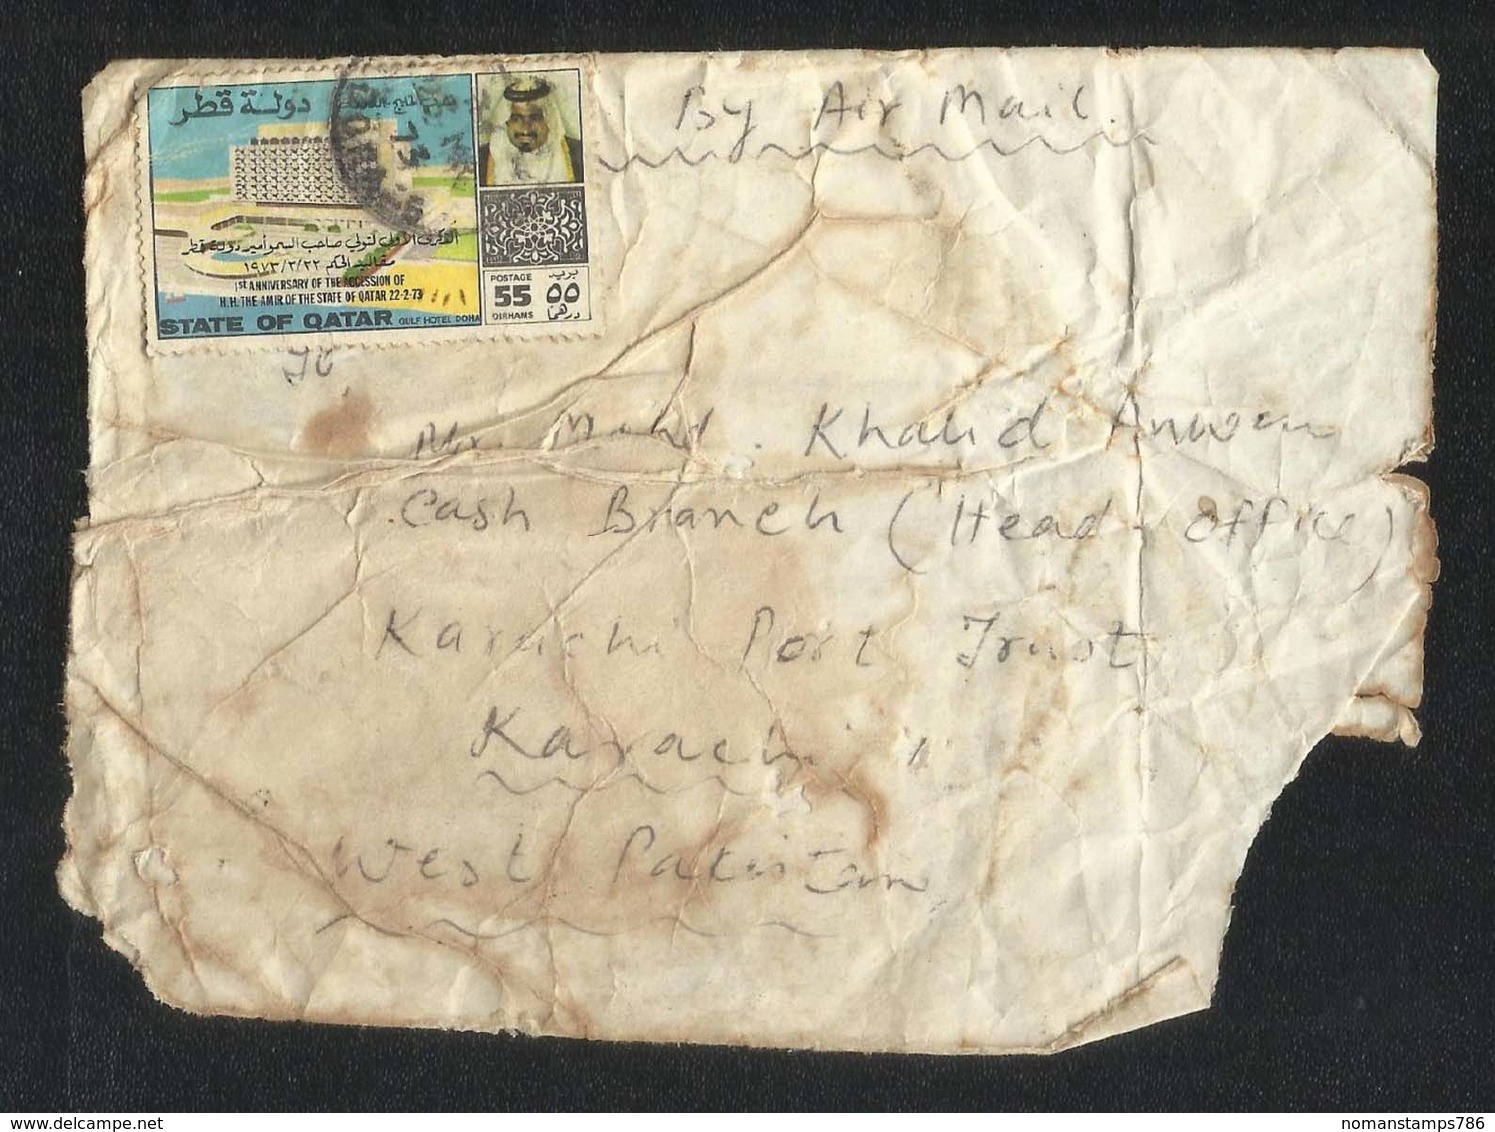 By Air Mail.
دولة قطر
الذكرى الأولى لتولي صاحب السمو أمير دولة قطر
مقاليد الحكم ١٩٧٣/٢/٢٢
1st ANNIVERSARY OF THE ACCESSION OF
H.H. THE AMIR OF THE STATE OF QATAR 22-2-73
STATE OF QATAR GULF HOTEL DOHA
POSTAGE بريد
55 ٥٥
DIRHAMS درهما
To
Mr. Mohd. Khalid Anwar
Cash Branch (Head-office)
Karachi Port Trust
Karachi
West Pakistan
nomanstamps786